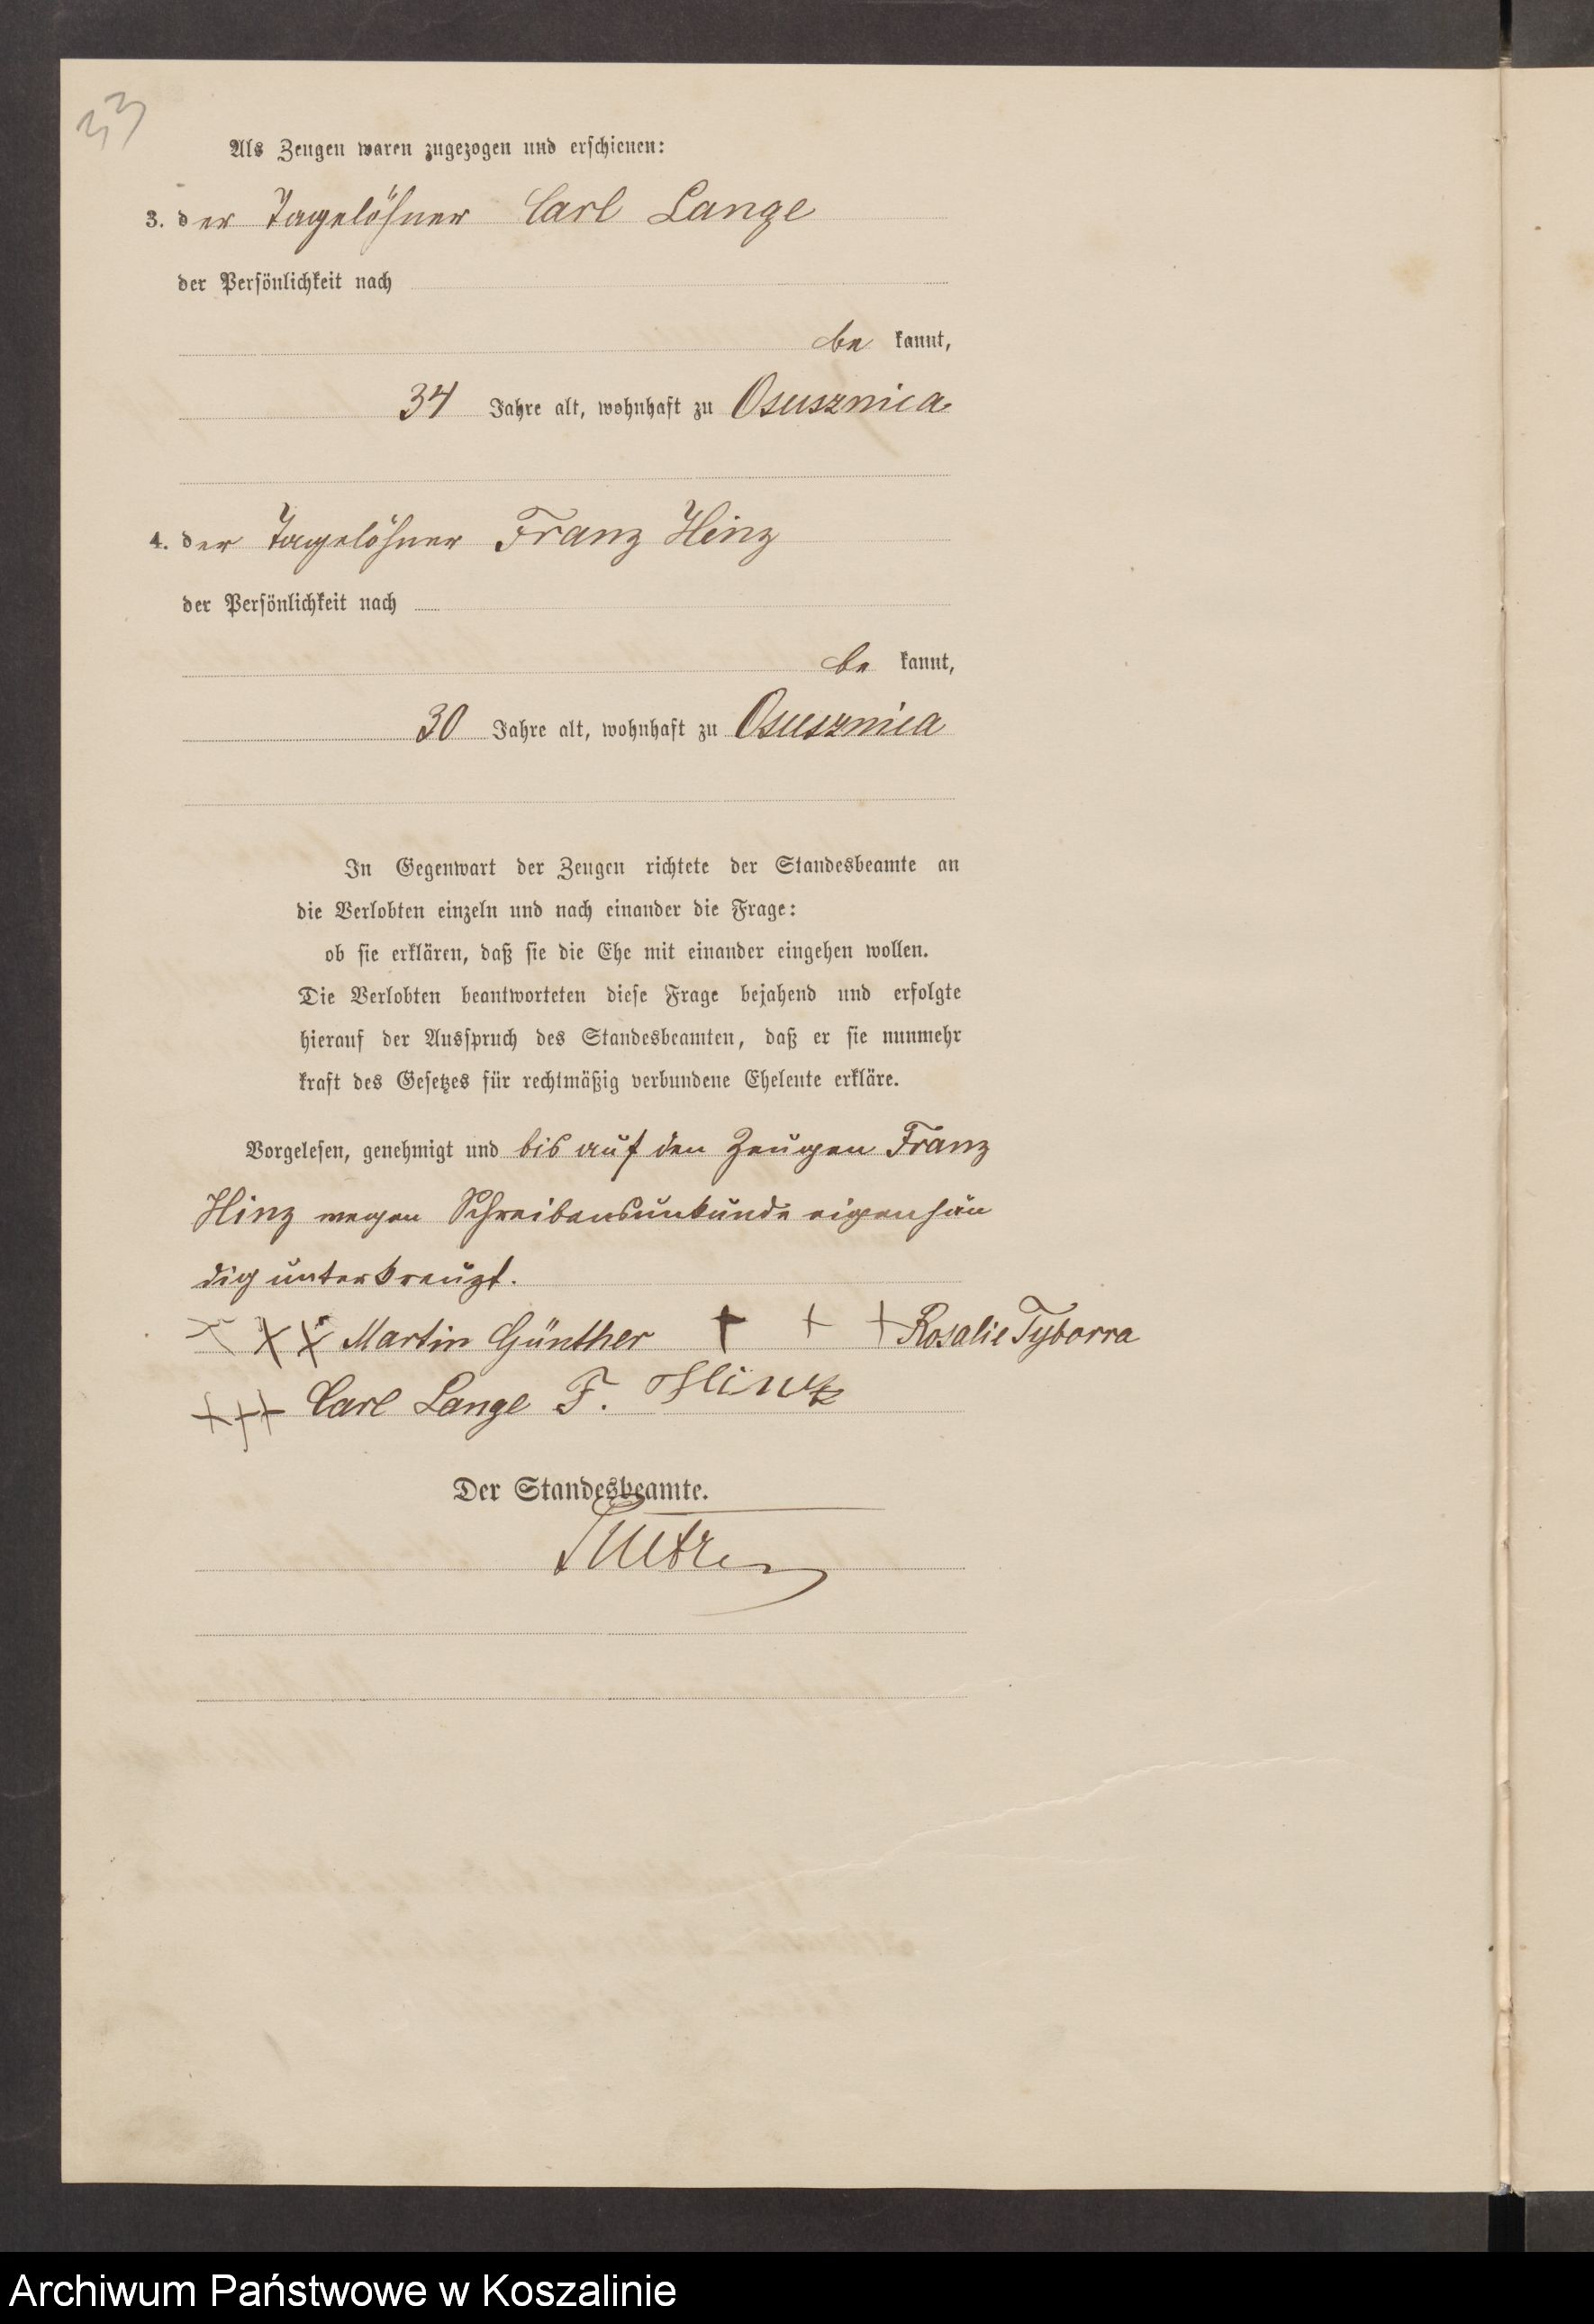 33
Als Zeugen waren zugezogen und erschienen:
3. der Tagelöhner Carl Lange
der Persönlichkeit nach
be kannt,
34 Jahre alt, wohnhaft zu Osusznica
4. der Tagelöhner Franz Hinz
der Persönlichkeit nach
be kannt,
30 Jahre alt, wohnhaft zu Osusznica
In Gegenwart der Zeugen richtete der Standesbeamte an
die Verlobten einzeln und nach einander die Frage:
ob sie erklären, daß sie die Ehe mit einander eingehen wollen.
Die Verlobten beantworteten diese Frage bejahend und erfolgte
hierauf der Ausspruch des Standesbeamten, daß er sie nunmehr
kraft des Gesetzes für rechtmäßig verbundene Eheleute erkläre.
Vorgelesen, genehmigt und bis auf den Zeugen Franz
Hinz wegen Schreibensunkunde eigenhän
dig unterkreuzt.
XXX Martin Günther + + + Rosalie Tyborra
+++ Carl Lange F. Hintz
Der Standesbeamte.
Archiwum Państwowe w Koszalinie